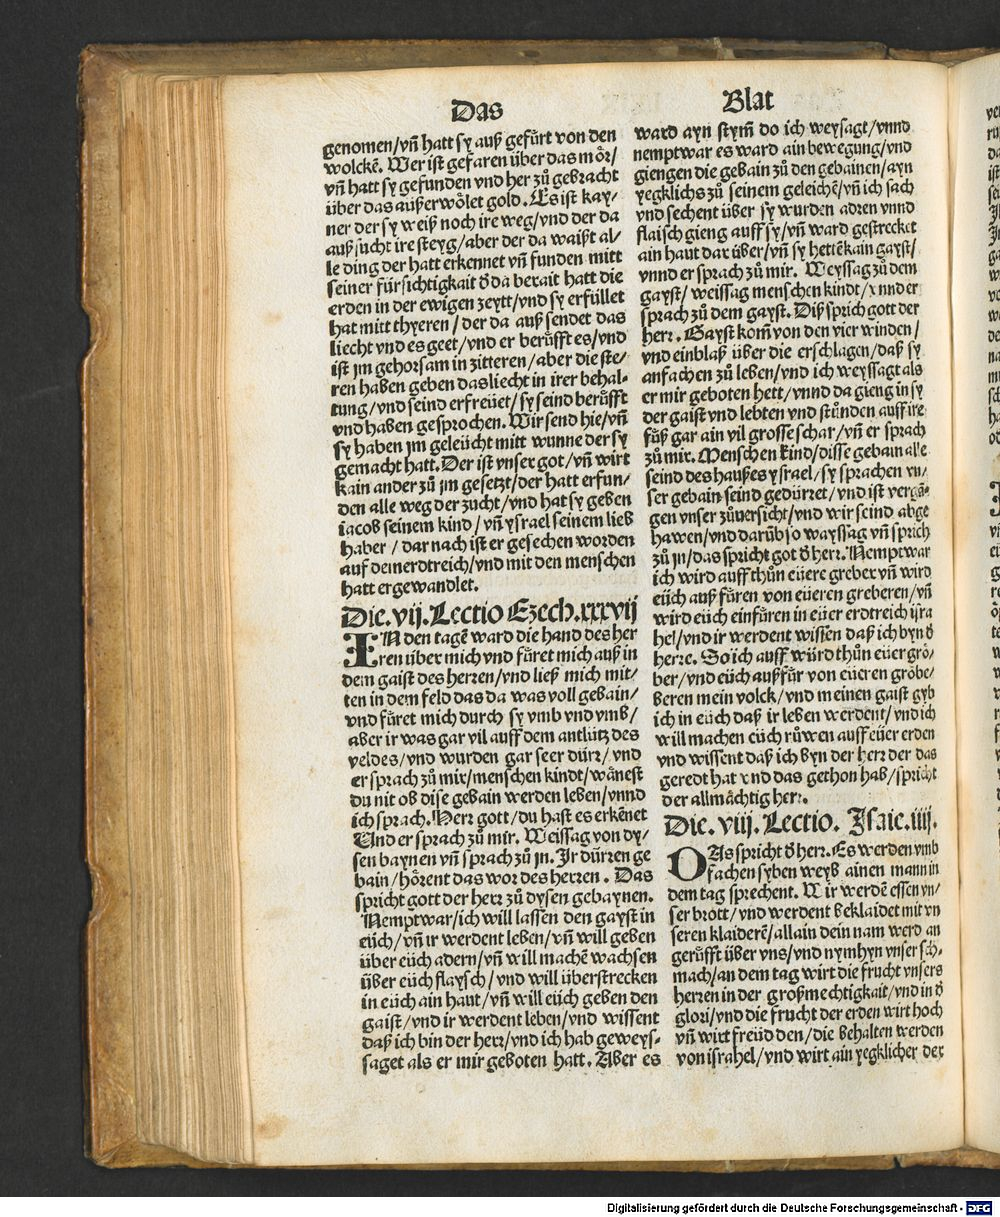 Das
Blat
genomen/vñ hatt sy auß gefürt von den
wolckē. Wer ist gefaren über das mör/
vñ hatt sy gefunden vnd her zů gebracht
über das außerwölet gold. Es ist kay/
ner der sy weiß noch ire weg/vnd der da
auß sucht ire steyg/aber der da waißt al/
le ding der hatt erkennet vñ funden mitt
seiner fürsichtigkait d̕ da berait hatt die
erden in der ewigen zeytt/vnd sy erfüllet
hat mitt thyeren/der da auß sendet das
liecht vnd es geet/vnd er berůfft es/vnd
ist jm gehorsam in zitteren/aber die ste/
ren haben geben das liecht in irer behal-
tung/vnd seind erfreüet/sy seind berůfft
vnd haben gesprochen. Wir send hie/vñ
sy haben jm geleücht mitt wunne der sy
gemacht hatt. Der ist vnser got/vñ wirt
kain ander zů jm gesetzt/der hatt erfun/
den alle weg der zucht/vnd hat sy geben
iacob seinem kind/vñ ysrael seinem lieb
haber/dar nach ist er gesechen worden
auf dem erdtreich/vnd mit den menschen
hatt er gewandlet.
Die.vij.Lectio Ezech.xxxvij
IN den tagē ward die hand des her
ren über mich vnd fůret mich auß in
dem gaist des herren/vnd ließ mich mit/
ten in dem feld das da was voll gebain/
vnd fůret mich durch sy vmb vnd vmb/
aber ir was gar vil auff dem antlütz des
veldes/vnd wurden gar seer dürr/vnd
er sprach zů mir/menschen kindt/wänest
du nit ob dise gebain werden leben/vnnd
ich sprach. Herr gott/du hast es erkēnet
Vnd er sprach zů mir. Weissag von dy/
sen baynen vñ sprach zů jn. Ir dürren ge
bain/hörent das wor des herren. Das
spricht gott der herr zů dysen gebaynen.
Nemptwar/ich will lassen den gayst in
eüch/vñ ir werdent leben/vñ will geben
über eüch adern/vñ will machē wachsen
über eüch flaysch/vnd will überstrecken
in eüch ain haut/vñ will eüch geben den
gaist/vnd ir werdent leben/vnd wissent
daß ich bin der herr/vnd ich hab geweys-
saget als er mir geboten hatt. Aber es
ward ayn stym̄ do ich weysagt/vnnd
nemptwar es ward ain bewegung/vnd
giengen die gebain zů den gebainen/ayn
yegklichs zů seinem geleichē/vñ ich sach
vnd sechent über sy wurden adren vnnd
flaisch gieng auff sy/vñ ward gestrecket
ain haut dar über/vñ sy hettē kain gayst/
vnnd er sprach zů mir. Weyssag zů dem
gayst/weissag menschen kindt/vnnd er
sprach zů dem gayst. Diß sprich gott der
herr. Gayst kom̄ von den vier winden/
vnd einblaß über die erschlagen/daß sy
anfachen zů leben/vnd ich weyssagt als
er mir geboten hett/vnnd da gieng in sy
der gaist vnd lebten vnd stůnden auff ire
fůß gar ain vil grosse schar/vñ er sprach
zů mir. Menschen kind/disse gebain alle
seind des haußes ysrael/sy sprachen vn/
ser gebain seind gedürret/vnd ist vergā-
gen vnser zůuersicht/vnd wir seind abge
hawen/vnd darüb so wayssag vñ sprich
zů jn/das spricht got d̕ herr. Nemptwar
ich wird auff thůn eüere greber vñ wird
eüch auß fůren von eüeren greberen/vñ
wird eüch einfůren in eüer erdtreich isra
hel/vnd ir werdent wissen daß ich byn d̕
herre. So ich auff würd thůn eüer grö/
ber/vnd eüch außfůr von eüeren gröbe/
beren mein volck/vnd meinen gaist gyb
ich in eüch daß ir leben werdent/vnd ich
will machen eüch růwen auff eüer erden
vnd wissent daß ich byn der herr der das
geredt hat vnd das gethon hab/spricht
der allmächtig herr.
Die.viij.Lectio. Isaie.iiij.
DAs spricht d̕ herr. Es werden vmb
fachen syben weyb ainen mann in
dem tag sprechent. Wir werdē essen vn/
ser brott/vnd werdent beklaidet mit vn
seren klaiderē/allain dein nam werd an
gerůfft über vns/vnd nymhyn vnser sch-
mach/an dem tag wirt die frucht vnsers
herren in der großmechtigkait/vnd in d̕
glori/vnd die frucht der erden wirt hoch
vñ wirt freüd den/die behalten werden
von israhel/vnd wirt ain yegklicher der
Digitalisierung gefördert durch die Deutsche Forschungsgemeinschaft - DFG